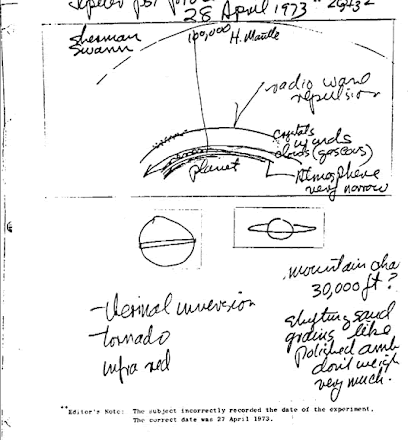 28 April 1973
Sherman
Swann
100,000
H. Mantle
radio wand
repulsion
crystals
winds
clouds (gaseous)
planet
Atmosphere
very narrow
mountain cha
30,000 ft ?
-thermal inversion
shifting sand
grains like
-tornado
polished amb
infra red
don't weigh
very much.
**Editor's Note: The subject incorrectly recorded the date of the experiment.
The correct date was 27 April 1973.